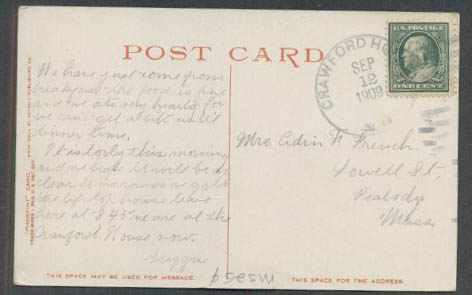 POST CARD
CRAWFORD HO
SEP
12
1909
N.H.
U.S. POSTAGE
ONE CENT
We have just come from
breakfast - the food is fine
and we ate very hearty for
we can't get a bit until
dinner time.
It is lovely this morning
and we hope it will be as
clear tomorrow as we go to
the tip top house leave
here at 8.45 we are at the
Crawford House now.
Mrs. Edwin F. French,
Lowell St,
Peabody
Mass
"PHOSTINT" CARD.
TRADE MARK REG. U.S. PAT. OFF.
MADE ONLY BY DETROIT PUBLISHING CO.
THIS SPACE MAY BE USED FOR MESSAGE.
THIS SPACE FOR THE ADDRESS.